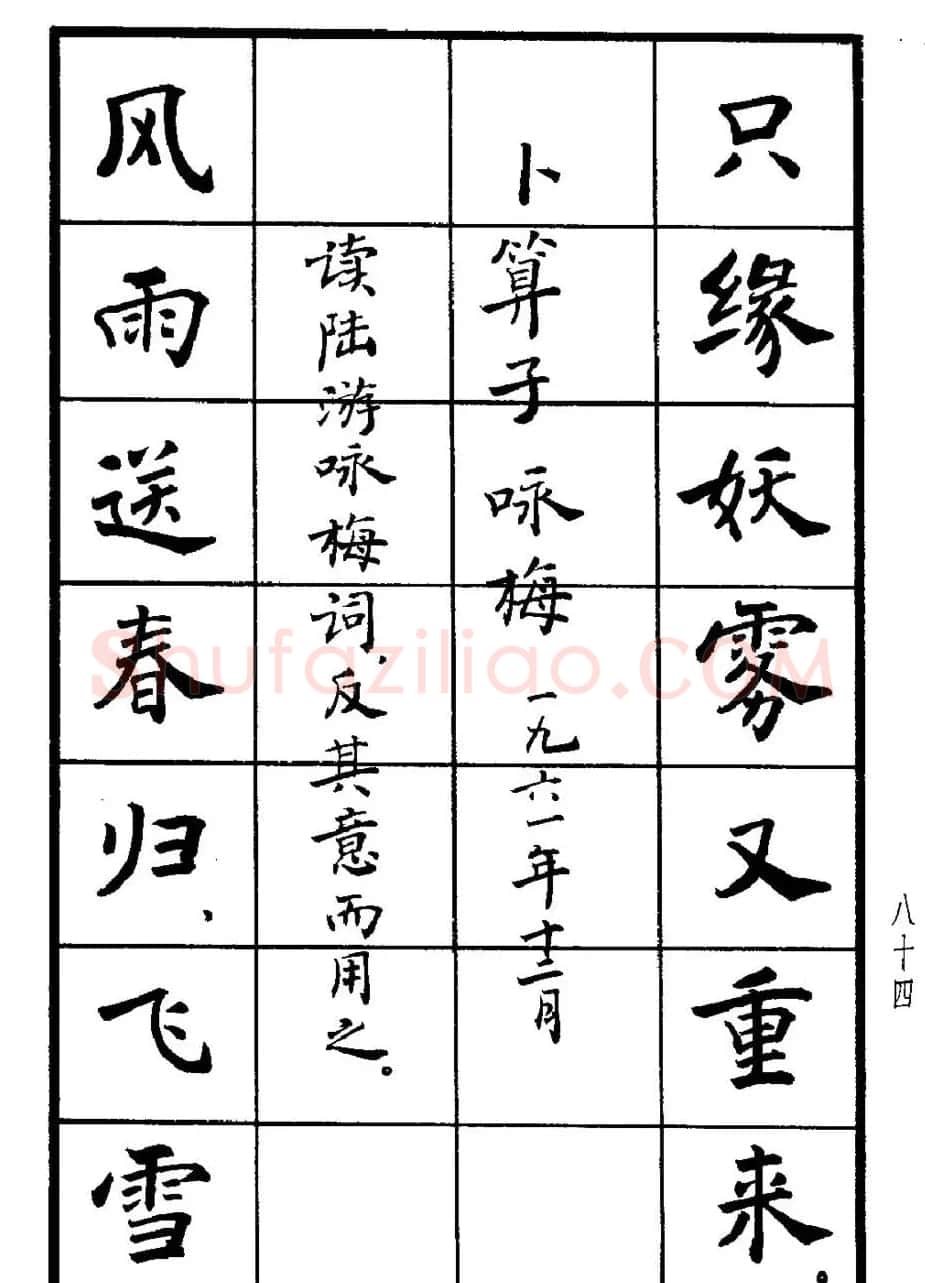 只缘妖雾又重来。
卜算子 咏梅 一九六一年十二月
读陆游咏梅词,反其意而用之。
风雨送春归,飞雪
八十四
Shufaziliao.COM